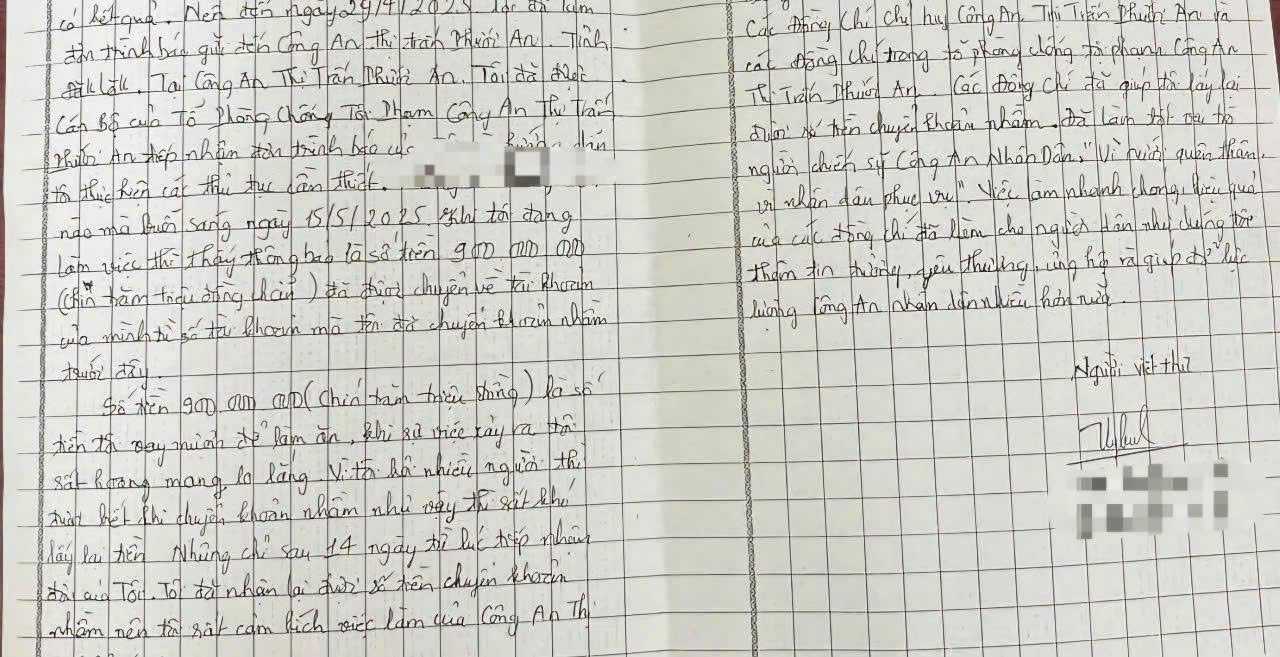 có kết quả. Nên đến ngày 29/4/2025 tôi đã làm
đơn trình báo gửi đến Công An thị trấn Phước An. Tỉnh
Đăk Lăk. Tại Công An Thị Trấn Phước An. Tôi đã được
Cán Bộ của Tổ Phòng Chống Tội Phạm Công An Thị Trấn
Phước An tiếp nhận đơn trình báo dẫn
tôi thực hiện các thủ tục cần thiết.
nào mà buổi sáng ngày 15/5/2025 khi tôi đang
làm việc thì thấy thông báo là số tiền 900 000 000
(chín trăm triệu đồng chẵn) đã được chuyển về tài khoản
của mình từ số tài khoản mà tôi đã chuyển khoản nhầm
trước đây.
Số tiền 900 000 000 (chín trăm triệu đồng) là số
tiền tôi vay mượn để làm ăn, khi sự việc xảy ra tôi
rất hoang mang, lo lắng. Vì tôi hỏi nhiều người thì
được biết khi chuyển khoản nhầm như vậy thì rất khó
lấy lại tiền. Nhưng chỉ sau 14 ngày từ lúc tiếp nhận
đơn của Tôi. Tôi đã nhận lại được số tiền chuyển khoản
nhầm nên tôi rất cảm kích việc làm của Công An Thị
Các Đồng Chí chỉ huy Công An Thị Trấn Phước An và
các Đồng chí trong tổ phòng chống tội phạm Công An
Thị Trấn Phước An. Các Đồng chí đã giúp tôi lấy lại
được số tiền chuyển khoản nhầm. Đã làm tốt vai trò
người chiến sỹ Công An Nhân Dân, "Vì nước quên thân,
vì nhân dân phục vụ". Việc làm nhanh chóng, hiệu quả
của các đồng chí đã làm cho người dân như chúng tôi
thêm tin tưởng, yêu thương, ủng hộ và giúp đỡ lực
lượng Công An nhân dân nhiều hơn nữa.
Người viết thư